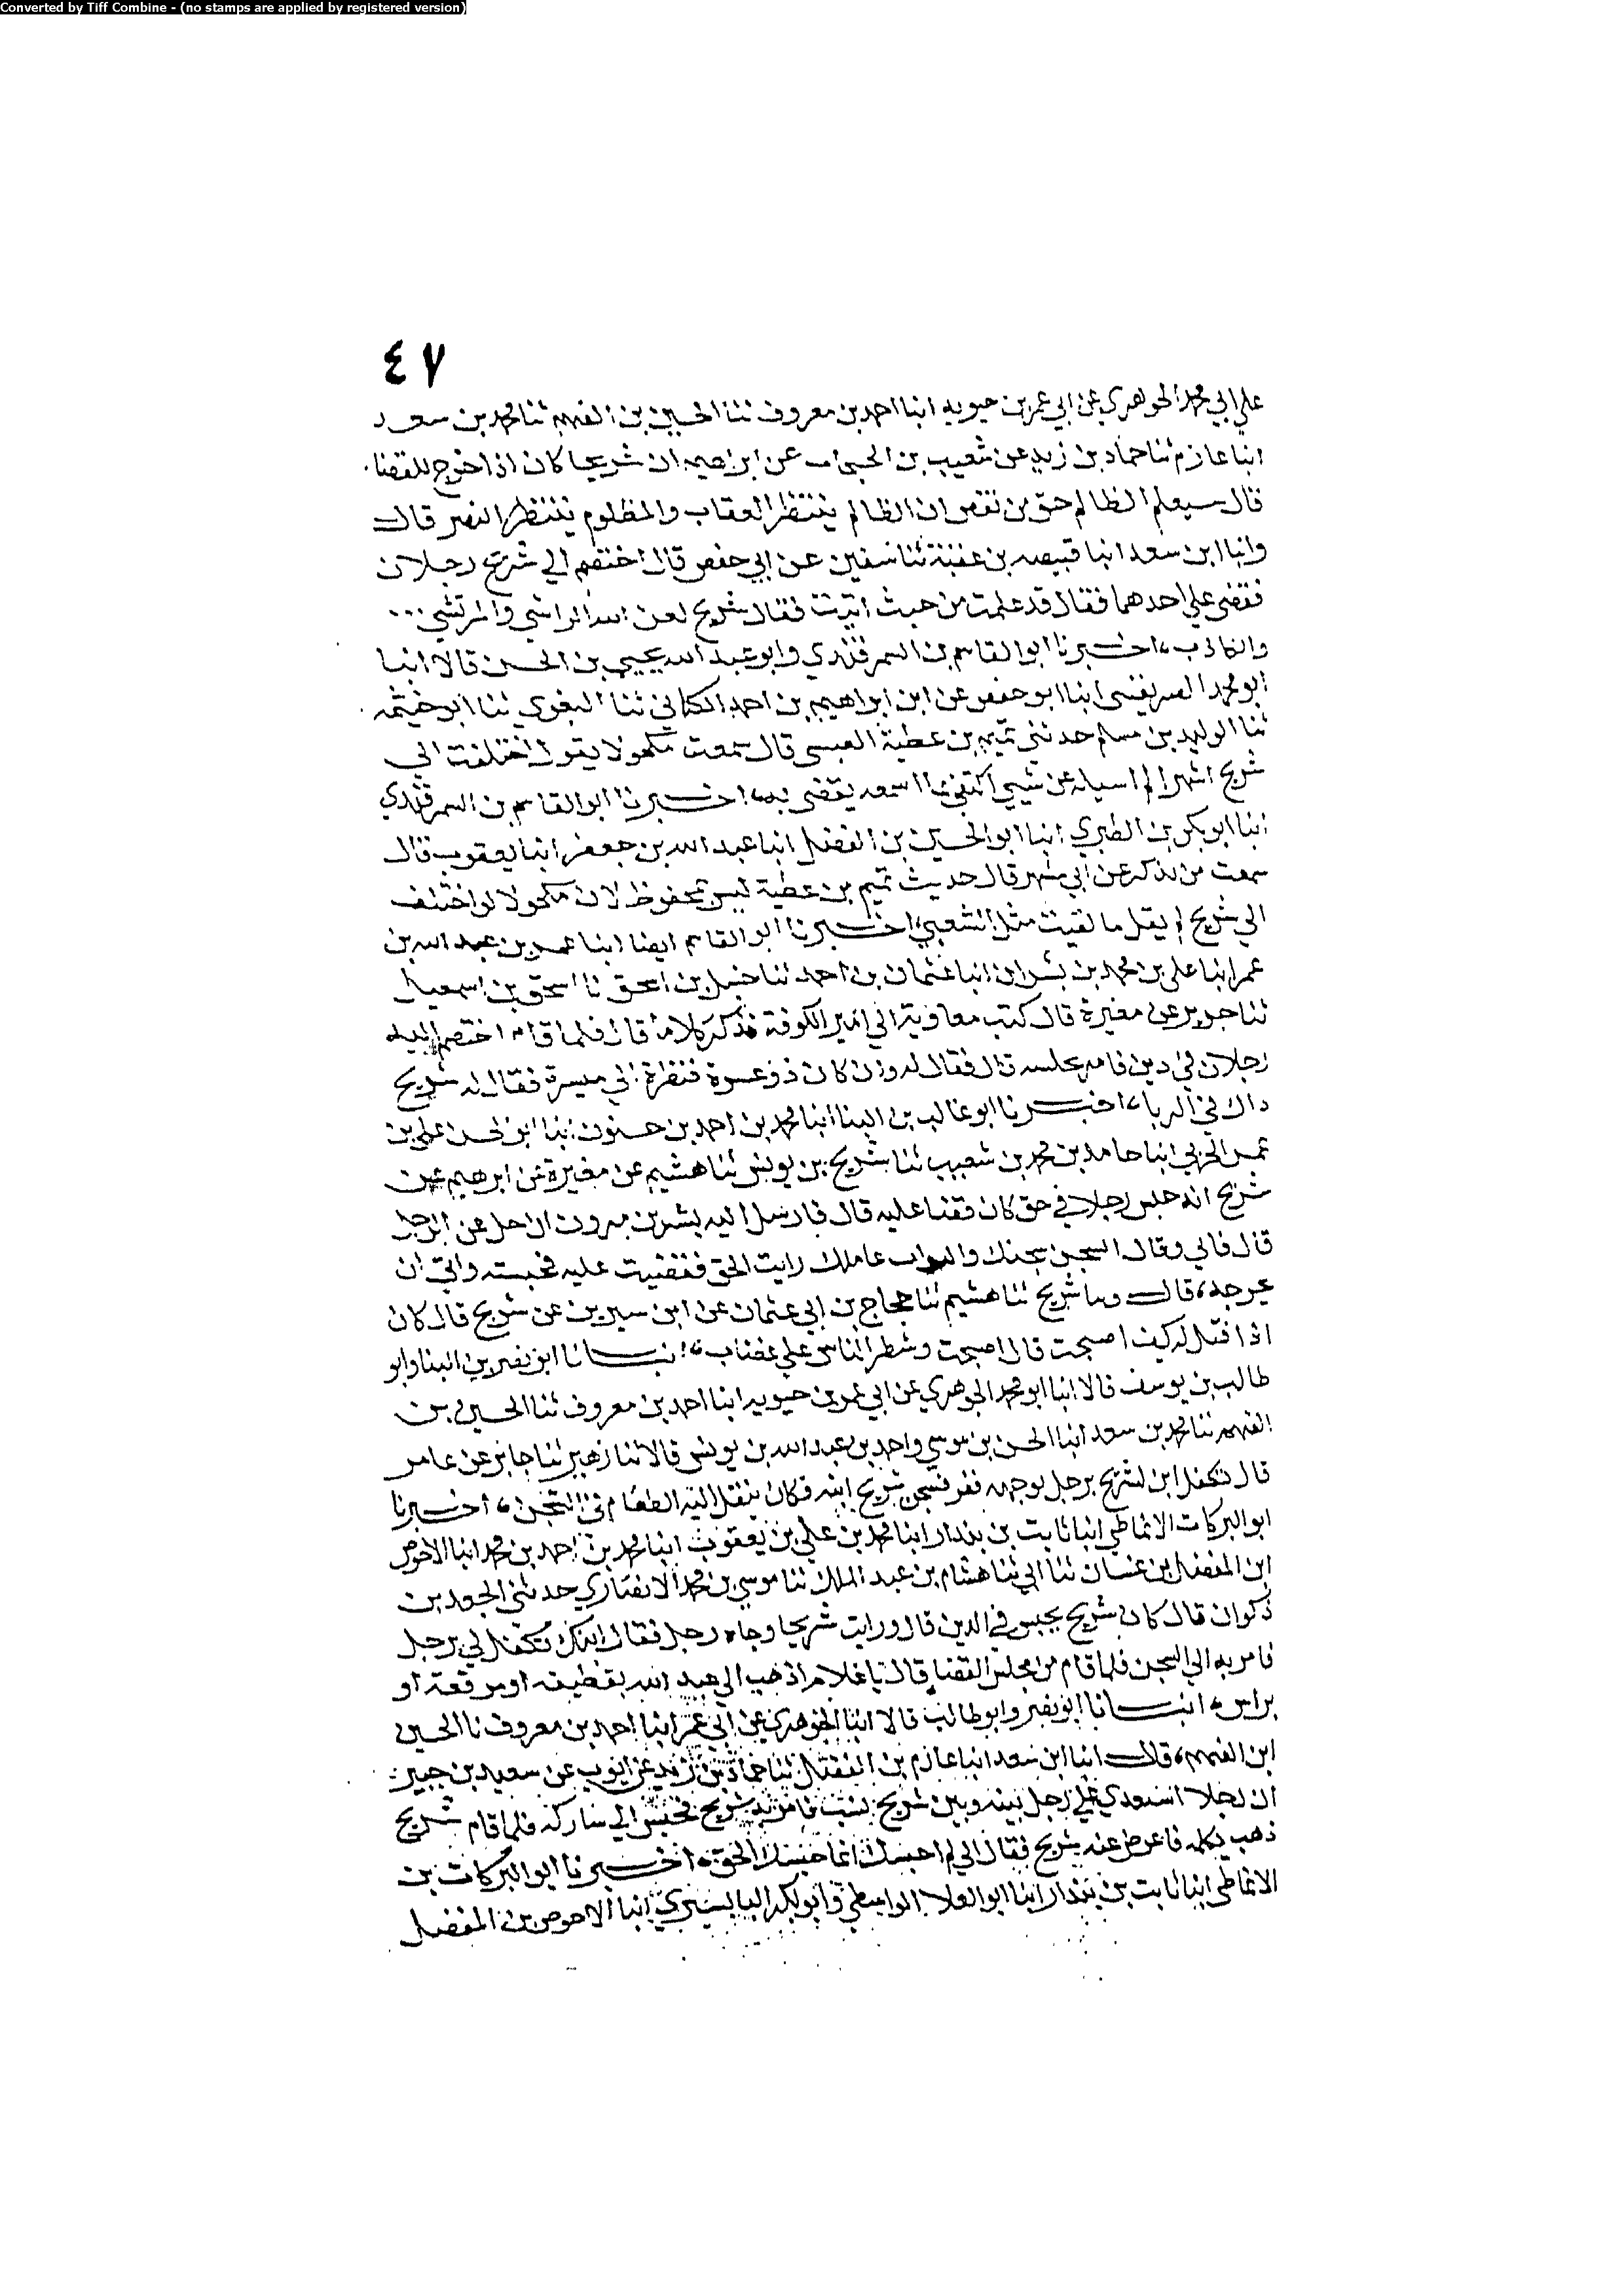 Converted by Tiff Combine - (no stamps are applied by registered version)
٤٧
علي ابي محمد الجوهري عن ابي عمر بن حيويه انبا احمد بن معروف ثنا الحسين بن الفهم ثنا محمد بن سعد
انبا عازم ثنا حماد بن زيد عن شعيب بن الحبحاب عن ابراهيم ان شريحا كان اذا خرج للقضا
قال سيعلم الظالم حق من نقص ان الظالم ينتظر العقاب والمظلوم ينتظر النصر قال
وانبا ابن سعد انبا قبيصه بن عقبة ثنا سفين عن ابي حفص قال اختصم الي شريح رجلان
فقضي علي احدهما فقال قد علمت من حيث اتيت فقال شريح لعن الله الراشي والمرتشي
والكاذب اخبرنا ابو القاسم بن السمرقندي وابو عبد الله يحيي بن الحسن قالا انبا
ابو محمد الصريفيني انبا ابو حفص عن ابن ابراهيم بن احمد الكتاني ثنا البغوي ثنا ابو خيثمه
ثنا الوليد بن مسلم حدثني تميم بن عطية العبسي قال سمعت مكحولا يقول اختلفت الي
شريح اشهرا لم اسيله عن شيي اكتفي بما اسمعه يقضي به اخبرنا ابو القاسم بن السمرقندي
انبا ابو بكر بن الطبري انبا ابو الحسين بن الفضل انبا عبد الله بن جعفر انبا يعقوب قال
سمعت من يذكر عن ابي مسهر قال حديث تميم بن عطية ليس بمحفوظ لان مكحولا لو اختلف
الي شريح لم يقل ما لقيت مثل الشعبي اخبرنا ابو القاسم ايضا انبا عمر بن عبد الله بن
عمر انبا علي بن محمد بن بشران انبا عثمان بن احمد ثنا حنبل بن اسحق نا اسحق بن اسمعيل
ثنا جرير عن مغيرة قال كتب معاوية الي امير الكوفة فذكر كلاما قال فلما قام اختصم اليه
رجلان في دين فامر بحبسه قال فقال له وان كان ذو عسرة فنظرة الي ميسرة فقال له شريح
ذاك في الربا اخبرنا ابو غالب بن البنا انبا محمد بن احمد بن حسنون انبا ابو الحسن علي بن
عمر الحربي انبا حامد بن محمد بن شعيب ثنا شريح بن يونس ثنا هشيم عن مغيرة عن ابرهيم عن
شريح انه حبس رجلا في حق كان قضا عليه قال فارسل اليه بشر بن مرون ان خل عن الرجل
قال فابي وقال السجن سجنك والبواب عاملك رايت الحق فقضيت عليه فحبسته وابي ان
يخرجه قال وثنا شريح ثنا هشيم ثنا حجاج بن ابي عثمان عن ابن سيرين عن شريح قال كان
اذا قيل له كيف اصبحت قال اصبحت وشطر الناس علي غضاب انبانا ابو نصر بن البنا وابو
طالب بن يوسف قالا انبا ابو محمد الجوهري عن ابي عمر بن حيويه انبا احمد بن معروف ثنا الحسين بن
الفهم ثنا محمد بن سعد انبا الحسن بن موسي واحمد بن عبد الله بن يونس قالا ثنا زهير ثنا جابر عن عامر
قال تكفل ابن لشريح برجل بوجهه ففر فسجن شريح ابنه فكان ينقل اليه الطعام في السجن اخبرنا
ابو البركات الانماطي انبا ثابت بن بندار انبا محمد بن علي بن يعقوب انبا محمد بن احمد بن محمد انبا الاحوص
ابن المفضل بن غسان ثنا ابي ثنا هشام بن عبد الملك ثنا موسي بن محمد الانصاري حدثني الجعد بن
ذكوان قال كان شريح يحبس في الدين قال ورايت شريحا وجاه رجل فقال ابنك تكفل لي برجل
فامر به الي السجن فلما قام من مجلس القضا قال يا غلام اذهب الي عبد الله بقطيفه او مرقعة او
براس انبانا ابو نصر وابو طالب قالا انبا الجوهري عن ابي عمر انبا احمد بن معروف نا الحسين
ابن الفهم قال انبا ابن سعد انبا عازم بن الفضل ثنا حماد بن زيد عن ايوب عن سعيد بن جبير
ان رجلا استعدي علي رجل بينه وبين شريح نسب فامر به شريح فحبس الي ساريه فلما قام شريح
ذهب يكلمه فاعرض عنه شريح فقال اني لم احبسك انما حبسك الحق اخبرنا ابو البركات بن
الانماطي انبا ثابت بن بندار انبا ابو العلا الواسطي وابو بكر البابسيري انبا الاحوص بن المفضل